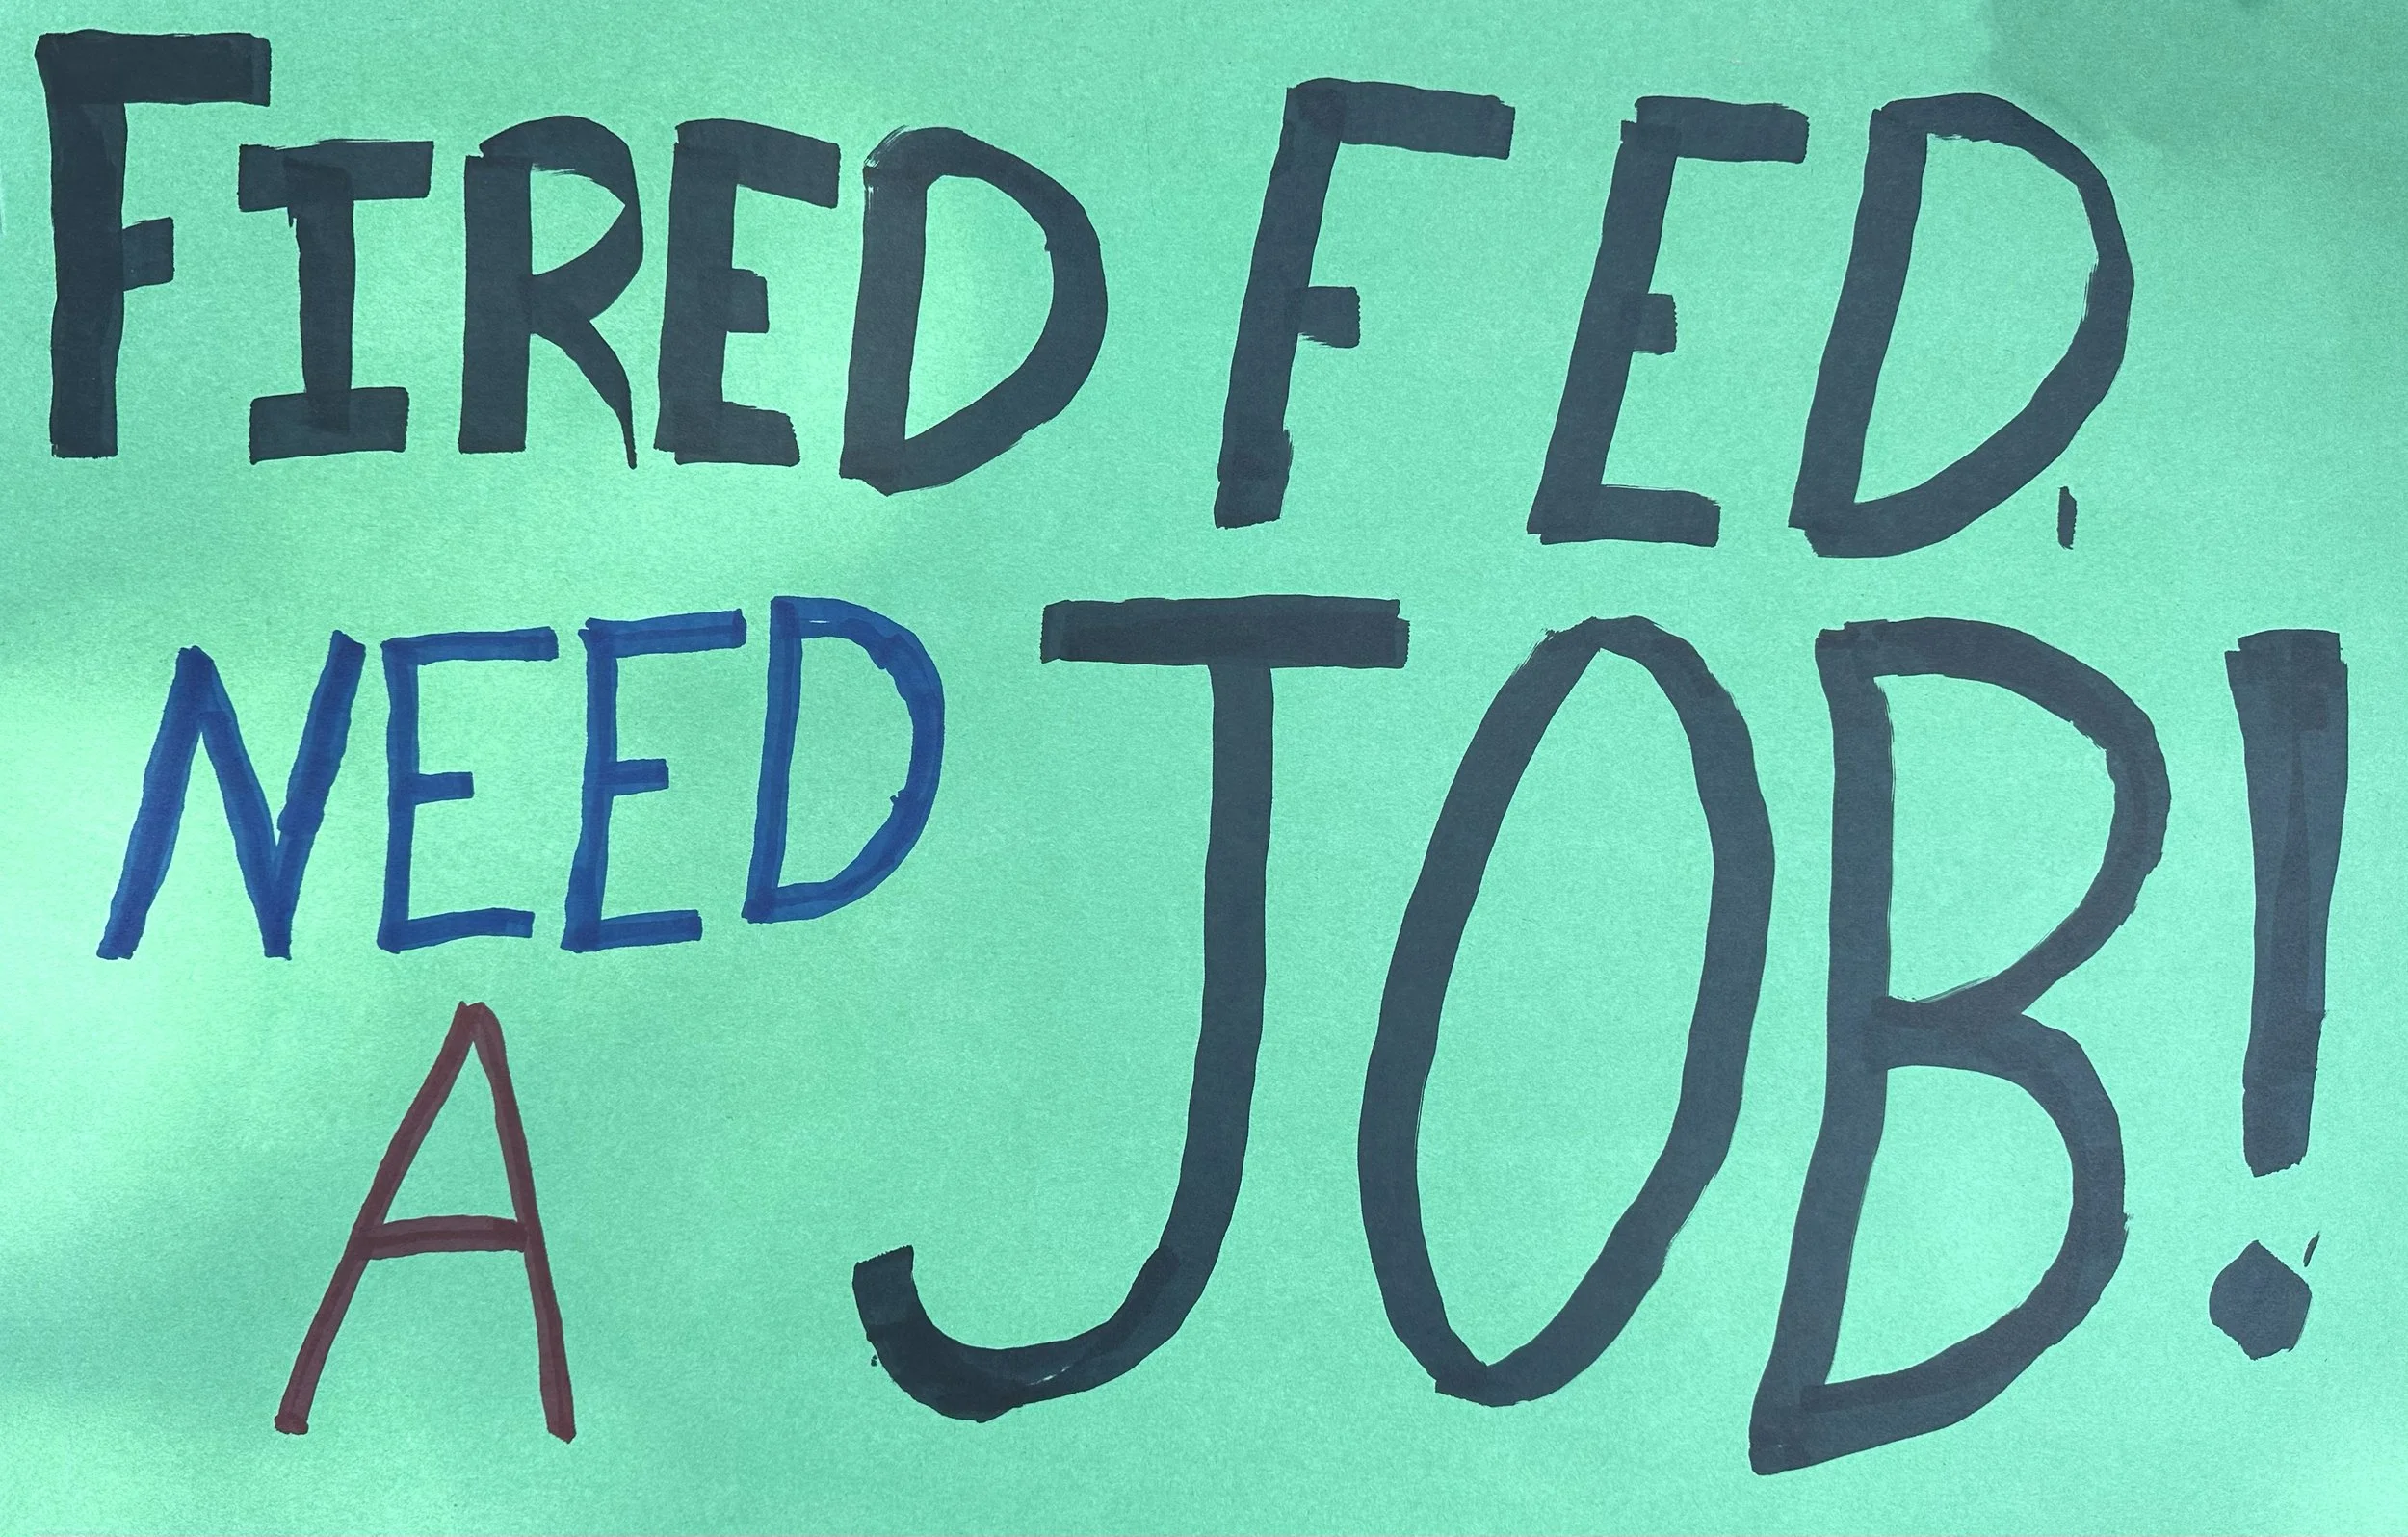 FIRED FED.
NEED
A JOB!